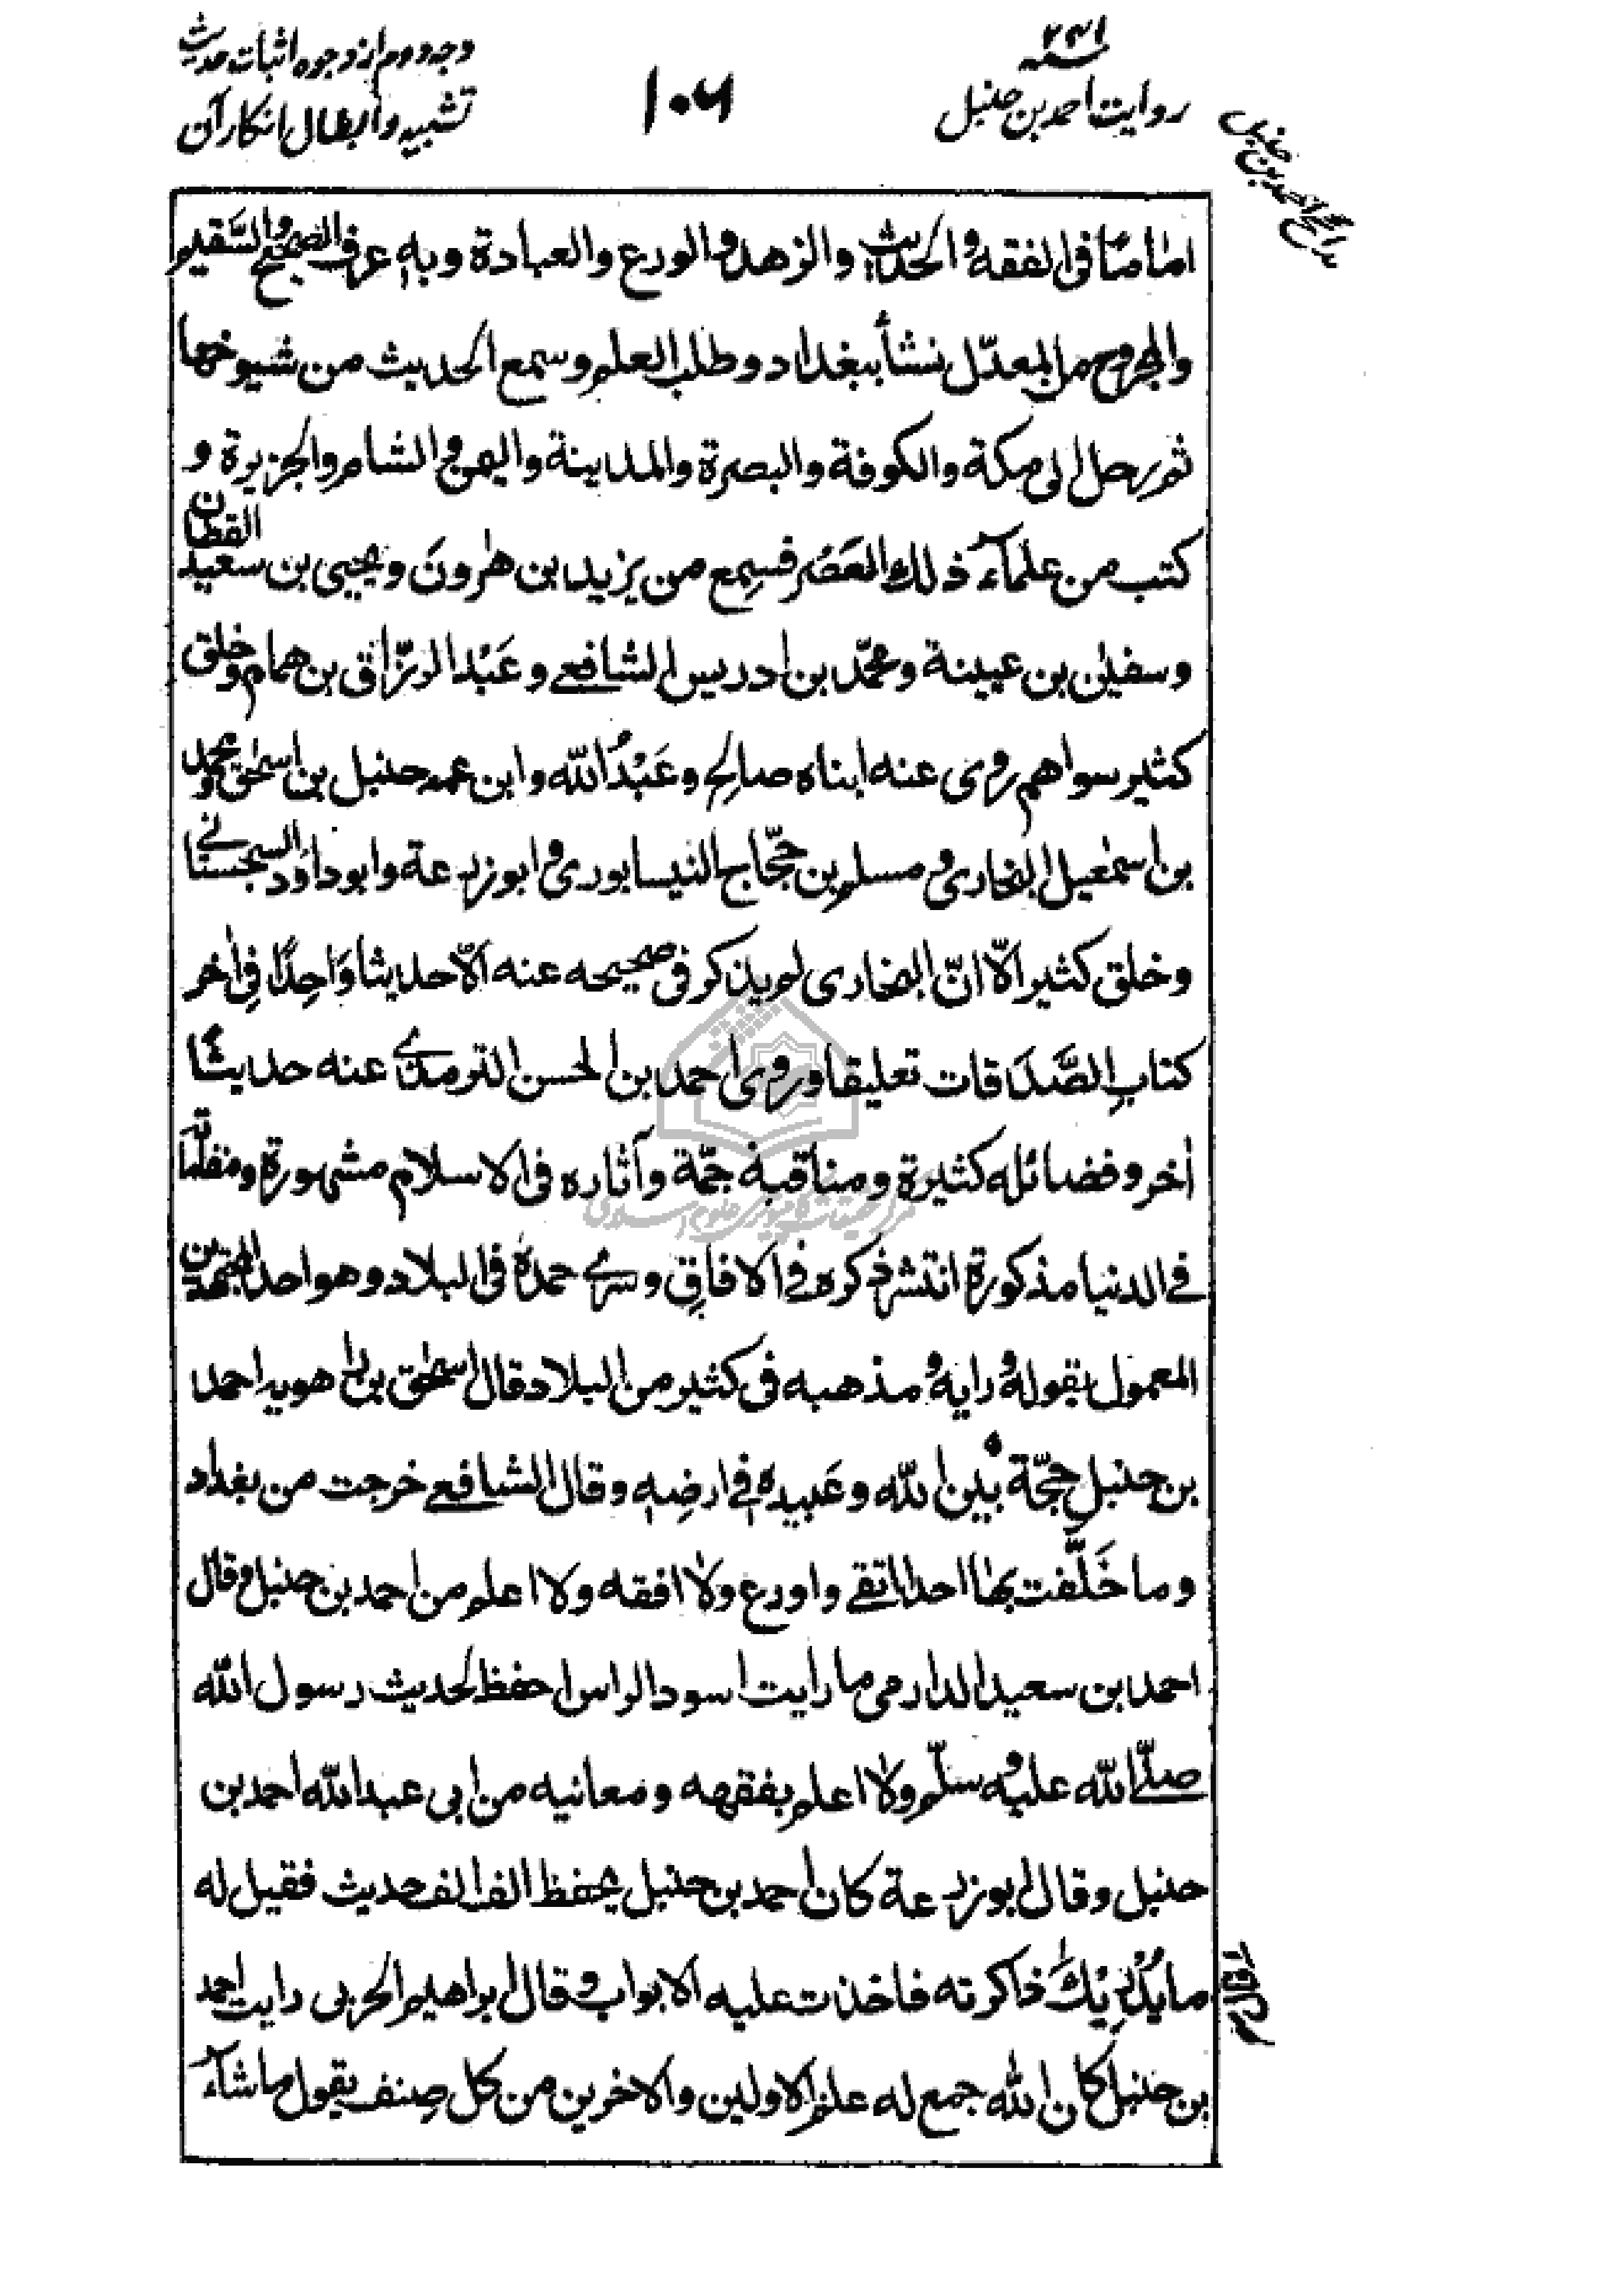 ۲۴۱
روایت احمد بن حنبل
۱۰۶
وجه دوم از وجوه اثبات حدیث
تشبیه و ابطال انکار آن
مدائح احمد بن حنبل
اماما فی الفقه و الحدیث والزهد والورع والعبادة وبه عرف الصحیح والسقیم
والمجروح من المعدّل نشأ ببغداد وطلب العلم وسمع الحدیث من شیوخها
ثم رحل الی مکة والکوفة والبصرة والمدینة والیمن والشام والجزیرة و
کتب من علماء ذلك العَصْر فسمِع من یزید بن هٰرونَ ویحیی بن سعید القطان
وسفیٰن بن عیینة ومحمّد بن ادریس الشافعے وعَبْد الرزّاق بن همام وخلق
کثیر سواهم روی عنه ابناه صالح وعَبْدُ الله وابن عمه حنبل بن اسحٰق ومحمد
بن اسمٰعیل البخاری ومسلم بن حجّاج النیسابوری وابو زرعة وابو داؤد السجستانے
وخلق کثیر الّا انّ البخاری لم یذکر فی صحیحه عنه الّا حدیثا وَاحِدًا فِی اٰخر
کتابِ الصَّدَقات تعلیقا وروی احمد بن الحسن الترمذے عنه حدیثًا
اٰخر وفضائله کثیرة ومناقبه جمّة وآثاره فی الاسلام مشهورة ومقاماته
فے الدنیا مذکورة انتشر ذکره فے الافاقِ وسرے حمدہ فی البلاد وهو احد المجتهدین
المعمول بقوله ورایه ومذهبه فی کثیر من البلاد قال اسحٰق بن راهویه احمد
بن حنبل حجّة بین الله وعبیده فے ارضِه وقال الشافعے خرجت من بغداد
وما خَلَّفت بها احدا اتقے واورع ولا افقه ولا اعلم من احمد بن حنبل وقال
احمد بن سعید الدارمی ما رایت اسود الراس احفظ لحدیث رسول الله
صلّے الله علیه وسلّم ولا اعلم بفقهه ومعانیه من ابی عبد الله احمد بن
حنبل وقال ابو زرعة کان احمد بن حنبل یحفظ الف الف حدیث فقیل له
ما یُدْرِیْكَ قال ذاکرته فاخذت علیه الابواب وقال ابراهیم الحربی رایت احمد
بن حنبل کان الله جمع له علم الاولین والاخرین من کل صِنف یقول ما شاء
مرکز تحقیقات کامپیوتری علوم اسلامی